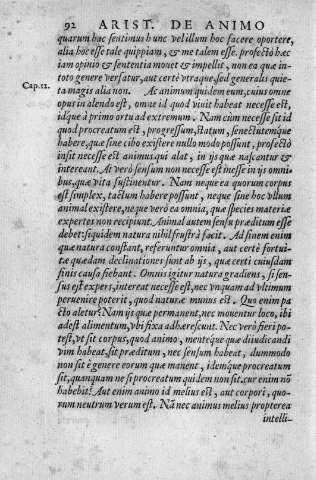 92 ARIST. DE ANIMO
quarum hac sentimus hunc vel illum hoc facere oportere,
alia hoc esse tale quippiam, & me talem esse. profectò hæc
iam opinio & sententia monet & impellit, non ea quæ in-
toto genere versatur, aut certè vtraque, sed generalis quie-
Cap.12. ta magis alia non. Ac animum quidem eum, cuius omne
opus in alendo est, omne id quod viuit habeat necesse est,
idque à primo ortu ad extremum. Nam cùm necesse sit id
quod procreatum est, progressum, statum, senectutemque
habere, quæ sine cibo existere nullo modo possunt, profectò
insit necesse est animus qui alat, in ijs quæ nascantur &
intereant. At verò sensum non necesse est inesse in ijs omni-
bus, quæ vita sustinentur. Nam neque ea quorum corpus
est simplex, tactum habere possunt, neque sine hoc vllum
animal existere, neque verò ea omnia, quæ species materiæ
expertes non recipiunt. Animal autem sensu præditum esse
debet: siquidem natura nihil frustrà facit. Ad finem enim
quæ natura constant, referuntur omnia, aut certè fortui-
tæ quædam declinationes sunt ab ijs, quæ certi cuiusdam
finis causa fiebant. Omnis igitur natura gradiens, si sen-
sus est expers, intereat necesse est, nec vnquam ad vltimum
peruenire poterit, quod naturæ munus est. Quo enim pa
cto aletur? Nam ijs quæ permanent, nec mouentur loco, ibi
adest alimentum, vbi fixa adhærescunt. Nec verò fieri po-
test, vt sit corpus, quod animo, mentéque quæ diiudicandi
vim habeat, sit præditum, nec sensum habeat, dummodo
non sit è genere eorum quæ manent, idemque procreatum
sit, quanquam ne si procreatum quidem non sit. cur enim nō
habebit? Aut enim animo id melius est, aut corpori, quo-
rum neutrum verum est. Nā nec animus melius propterea
intelli-